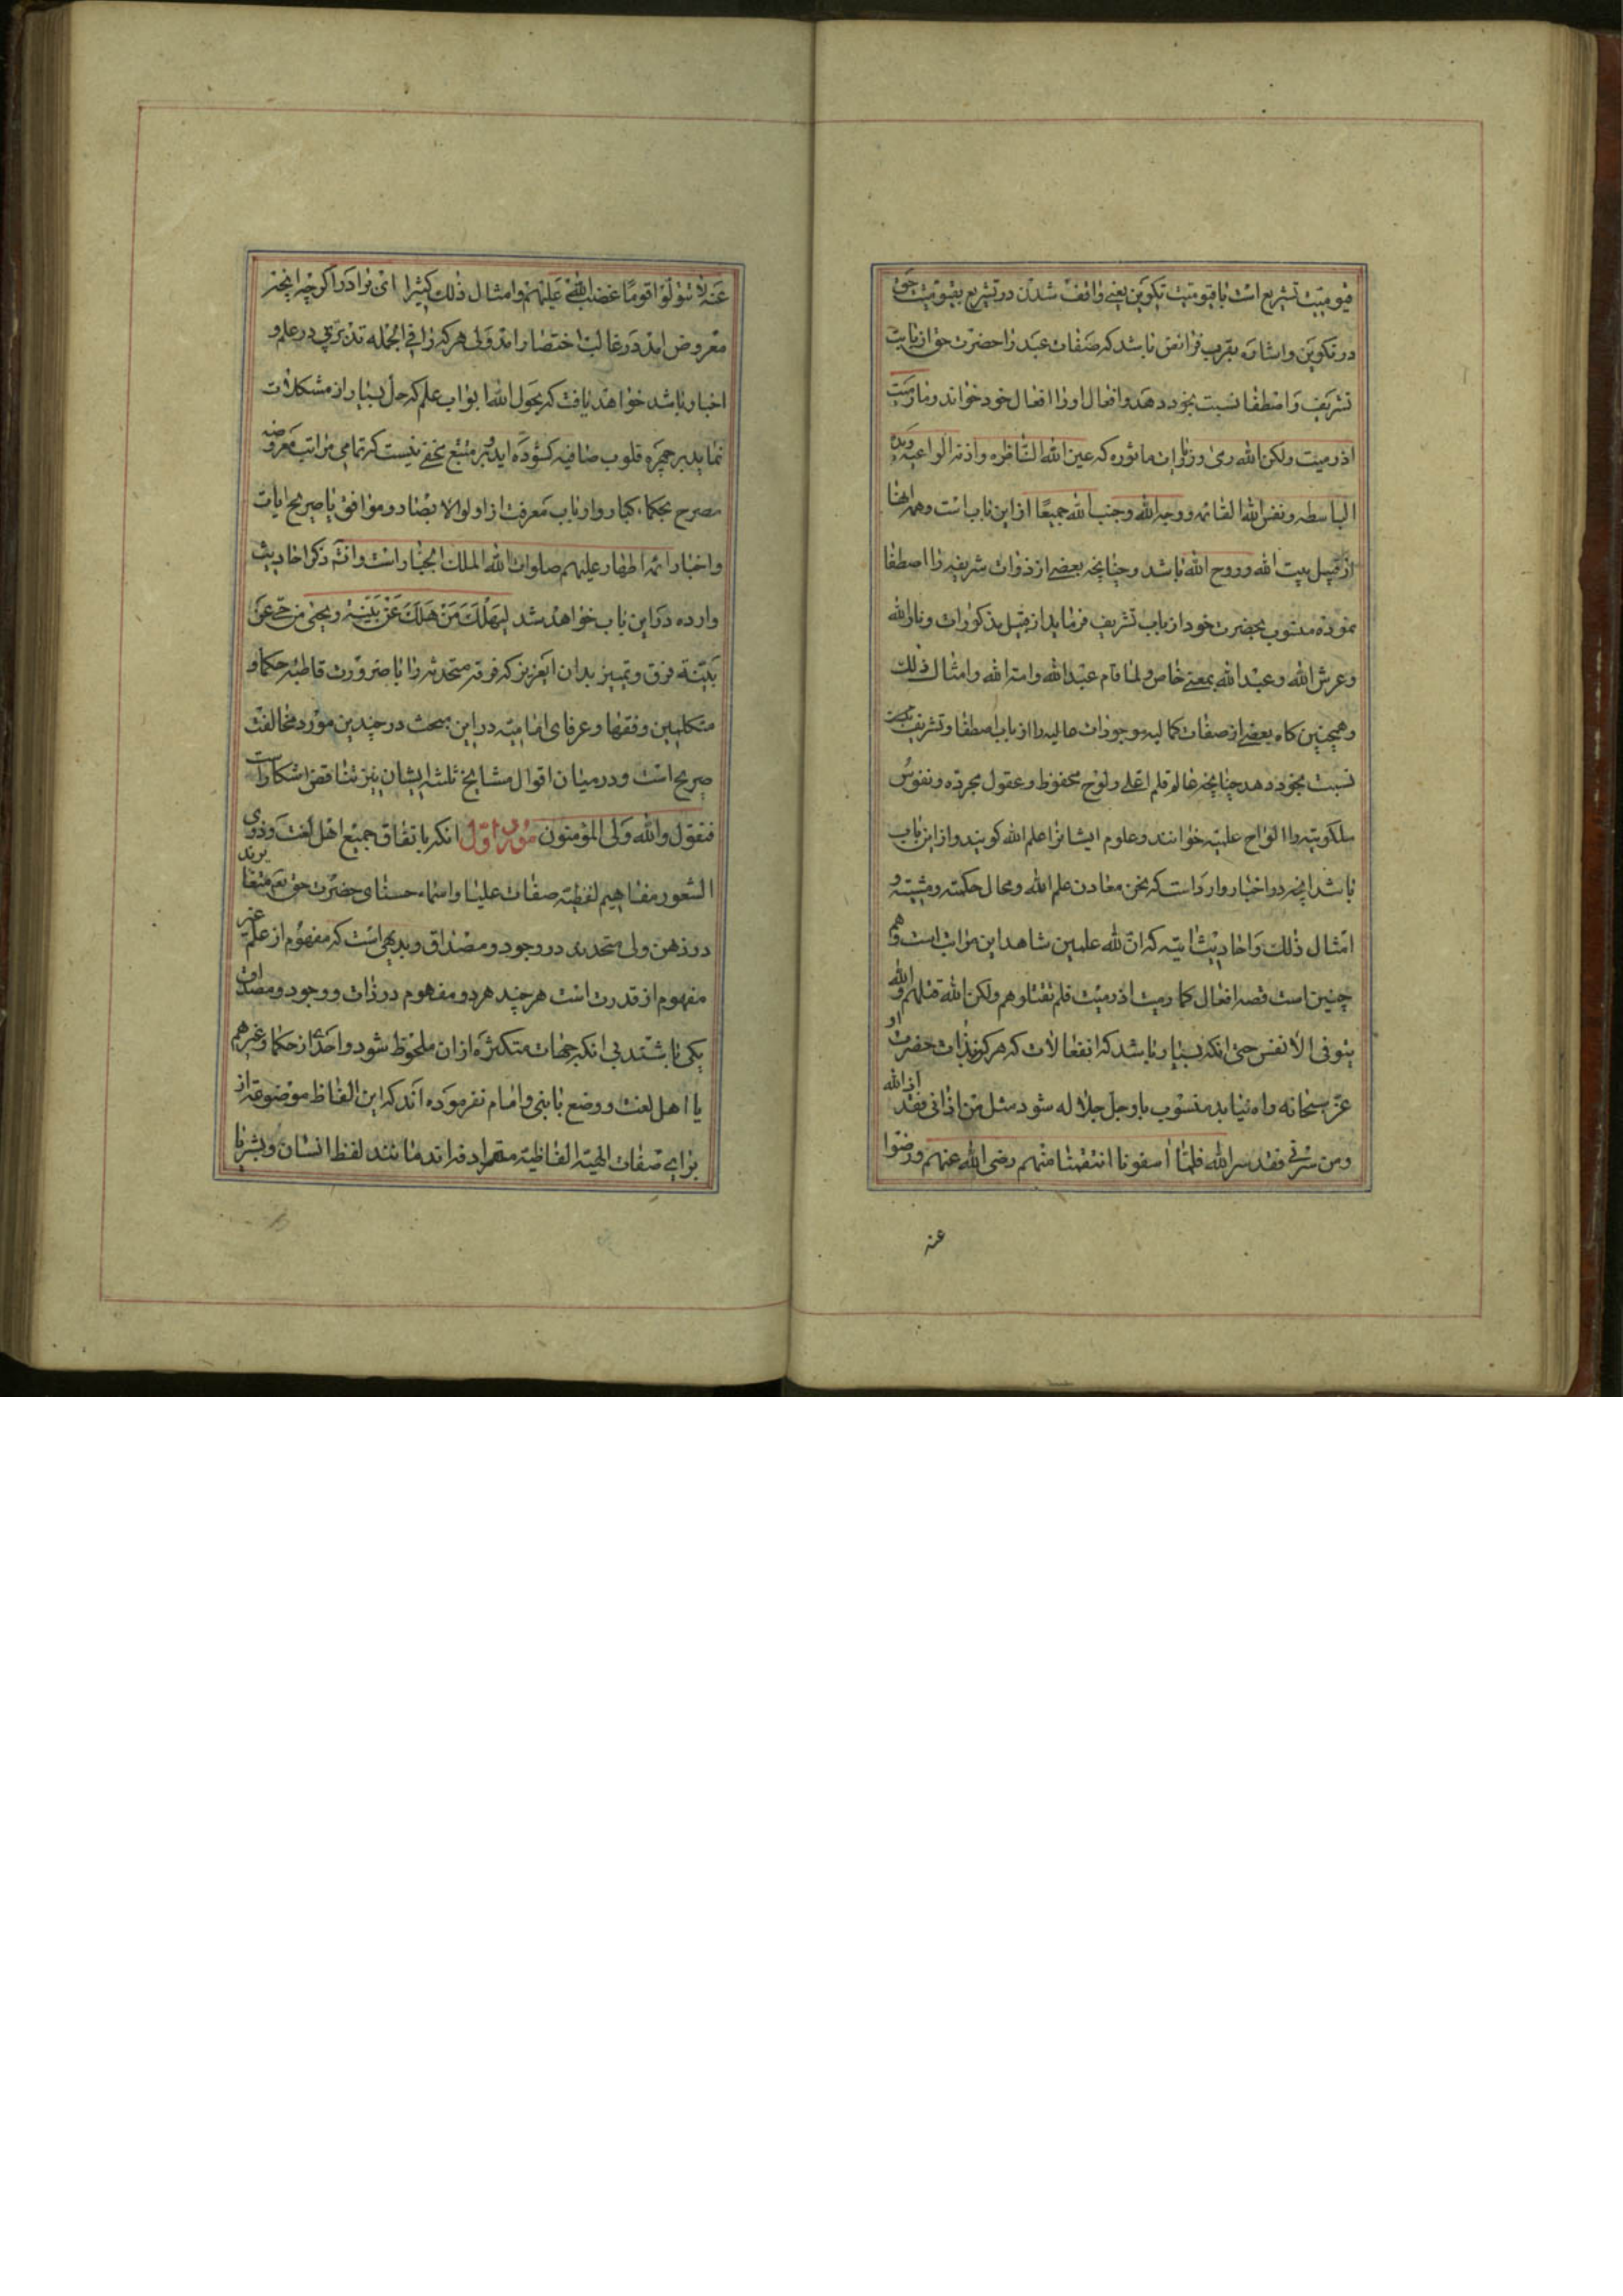 قیومیت تشریع است با قیومیت تکوین یعنی واقف شدن در تشریع بقیومیت حق
در تکوین و اشاره بقرب فرائض باشد که صفات عبد را حضرت حق از بابت
تشریف و اصطفا نسبت بخود دهد و افعال او را افعال خود خواند و ما رمیت
اذ رمیت ولکن الله رمی و زیارات ماثوره که عین الله الناظره و اذنه الواعیه و یده
الباسطه و نفس الله القائمه و وجه الله و جنب الله جمیعا از این باب است و همه اینها
از قبیل بیت الله و روح الله باشد و چنانچه بعضی از ذوات شریفه را اصطفا
نموده منسوب بحضرت خود از باب تشریف فرماید از قبیل مذکورات و نار الله
و عرش الله و عبد الله بمعنی خاص و لما قام عبد الله و امة الله و امثال ذلک
و همچنین گاه بعضی از صفات کمالیه موجودات عالیه را از باب اصطفا و تشریف
نسبت بخود دهد چنانچه عالم قلم اعلی و لوح محفوظ و عقول مجرده و نفوس
ملکوتیه را الواح علمیه خوانند و علوم ایشانرا علم الله گویند و از این باب
باشد انچه در اخبار وارد است که نحن معادن علم الله و محال حکمته و مشیته و
امثال ذلک و احادیث که ان لله علمین شاهد این مراتب است و هم
چنین است قصه افعال کما رمیت اذ رمیت فلم تقتلوهم ولکن الله قتلهم و الله
یتوفی الانفس حتی انکه بسیار باشد که انفعالات که هرگز بذات حضرت او
عز سبحانه راه نیابد منسوب باو جل جلاله شود مثل من اذانی فقد اذی الله
و من سرنی فقد سر الله فلما آسفونا انتقمنا منهم رضی الله عنهم و رضوا
عنه
عنه لا تتولوا قوما غضب الله علیهم و امثال ذلک کثیرا ای برادر اگرچه انچه
معروض امد در غالب اختصار امد ولی هر که را فی الجمله تدبری در علم و
اخبار باشد خواهد یافت که بحول الله ابواب علم که حل بسیار از مشکلات
نماید بر چهره قلوب صافیه گشوده اید و بر متتبع مخفی نیست که تمامی مراتب معروضه
مصرح بحکماء کبار و ارباب معرفت از اولو الابصار و موافق با صریح ایات
و اخبار ائمه اطهار علیهم صلوات الله الملک الجبار است و انشه ذکر احادیث
وارده در این باب خواهد شد لیهلک من هلک عن بینة و یحیی من حی عن
بینة فرق و تمییز بدان ایعزیز که فرقه متحدثه را با ضرورت قاطبه حکما و
متکلمین و فقها و عرفای امامیه در این مبحث در چندین مورد مخالفت
صریح است و در میان اقوال مشایخ ثلثه ایشان نیز تناقض اشکارا است
فنقول والله ولی المؤمنون مورد اول انکه باتفاق جمیع اهل لغت و ذوی
الشعور مفاهیم لفظیه صفات علیا و اسماء حسنای حضرت حق تع متغایرند
در ذهن ولی متحدند در وجود و مصداق و بدیهی است که مفهوم از علم غیر
مفهوم از قدرت است هر چند هر دو مفهوم در ذات و وجود و مصداق
یکی باشند بی انکه جهات متکثره از ان ملحوظ شود و احدی از حکما و غیرهم
یا اهل لغت و وضع یا نبی و امام نفرموده اند که این الفاظ موضوعه از
برای صفات الهیه الفاظیه مترادفه اند مانند لفظ انسان و بشر یا